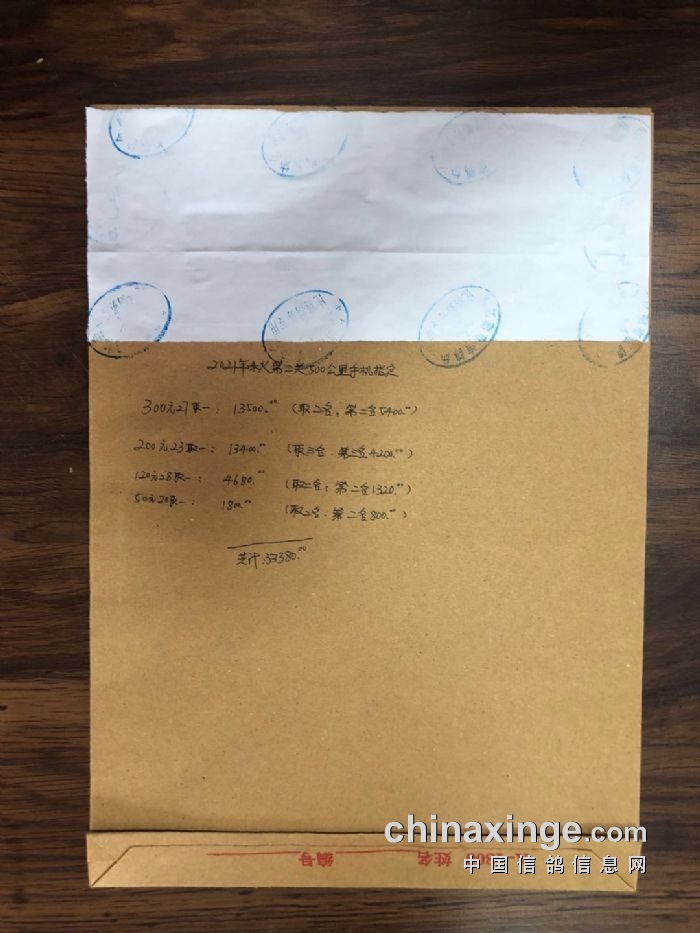 2021年秋 第二关500公里手机指定
300元27取一: 13500.00 (取二台, 第二台5400.00)
200元23取一: 13400.00 (取三台. 第三台4200.00)
120元28取一: 4680.00 (取二台, 第二台1320.00)
50元20取一: 1800.00 (取二台. 第二台800.00)
共计:33380.00
chinaxinge.com
中国信鸽信息网
姓名
编号